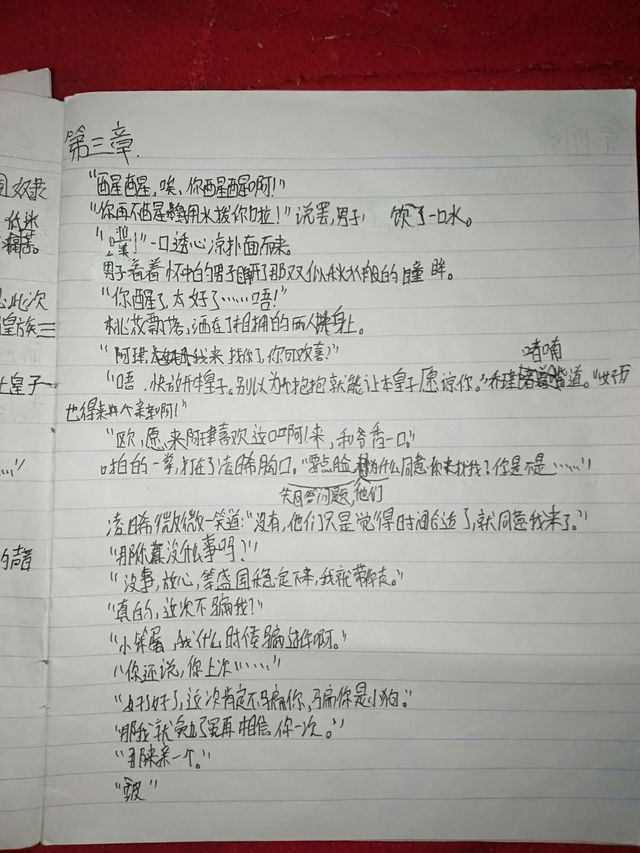 第三章.
"醒醒,唉、你醒醒啊!"
"你再不醒我用水拨你啦!"说罢,男子 饮了一口水。
"噗!"一口透心凉扑面而来。
男子看着怀中的男子睁开了那双似秋水般的瞳眸。
"你醒了,太好了……唔!"
桃花飘落,洒在了相拥的两人身上。
"阿珒,我来找你了,你可欢喜?"
喃喃
"唔,快放开本皇子。别以为抱抱就能让本皇子愿谅你。"道。"好歹
也得来个亲亲啊!"
"欧,愿来阿珒喜欢这口啊!来,和爷香一口。"
口拍的一掌,打在了凌晞胸口。"要点脸,为什么同意你来找我?你是不是……"
先回答问题,他们
凌晞微微一笑道:"没有,他们只是觉得时间合适了,就同意我来了。"
"那你真没什么事吗?"
"没事,放心,等盛国稳定下来,我就带你走。"
"真的,这次不骗我?"
"小笨蛋,我什么时侯骗过你啊。"
"你还说,你上次……"
"好好了,这次肯定不骗你,骗你是小狗。"
"那我就勉为其难再相信你一次。"
"再来亲一个。"